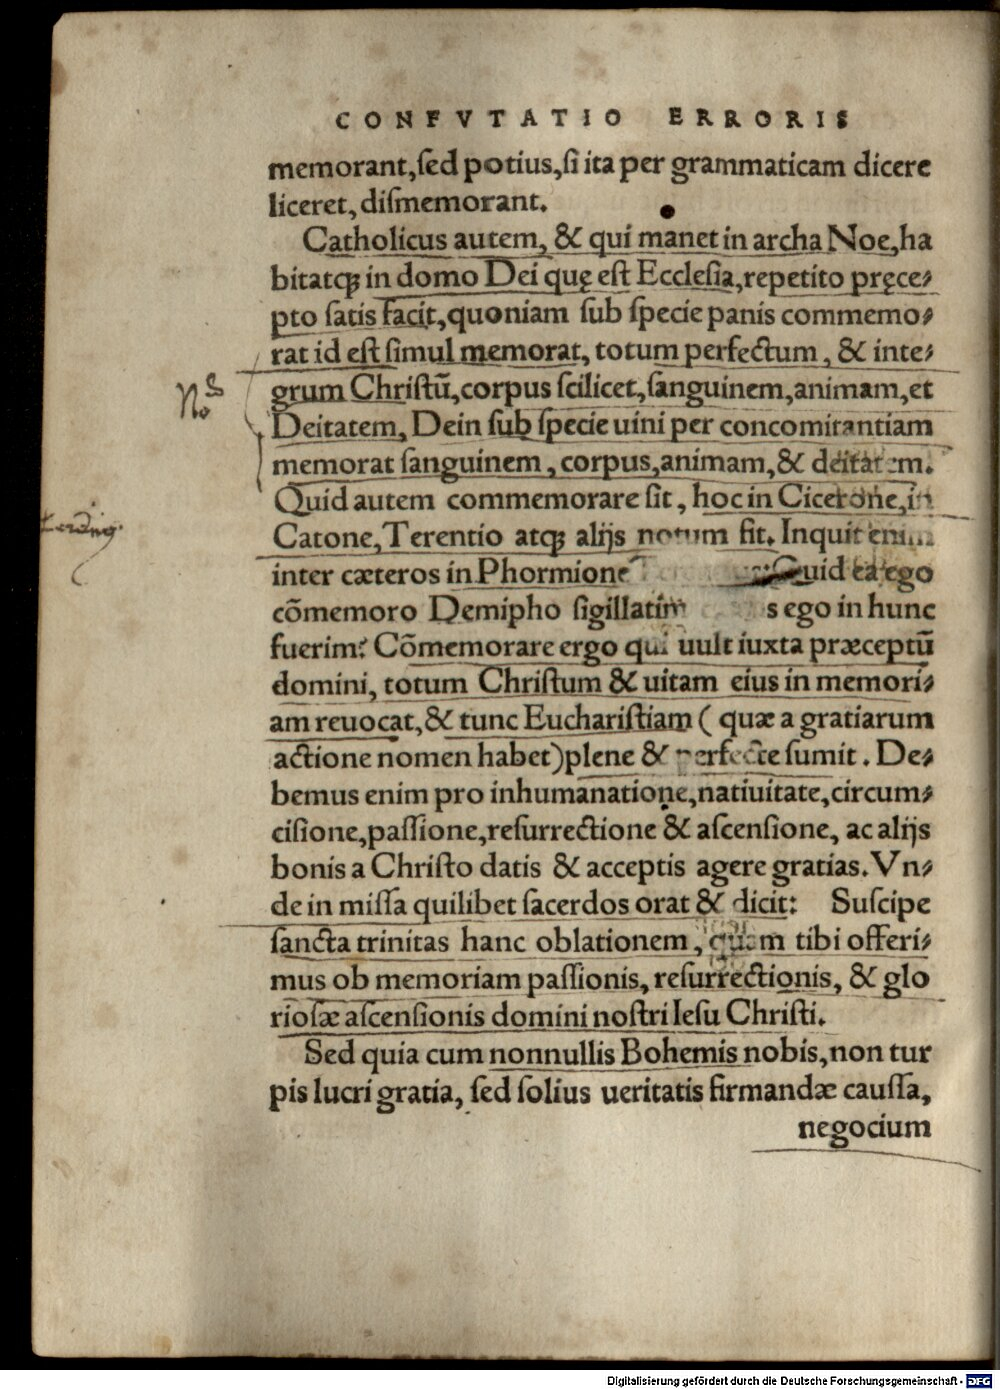 CONFVTATIO ERRORIS
memorant,ſed potius,ſi ita per grammaticam dicere
liceret, diſmemorant.
Catholicus autem, & qui manet in archa Noe, ha
bitatqꝫ in domo Dei quę eſt Ecclesia, repetito pręce⸗
pto ſatis facit, quoniam ſub ſpecie panis commemo⸗
rat id eſt ſimul memorat, totum perfectum, & inte⸗
grum Chriſtū, corpus ſcilicet, ſanguinem, animam, et
Deitatem, Dein ſub ſpecie uini per concomitantiam
memorat ſanguinem, corpus, animam, & deitatem.
Quid autem commemorare ſit, hoc in Cicerone, in
Catone, Terentio atqꝫ alijs notum fit. Inquit enim
inter cæteros in Phormione Quid ea ego
cōmemoro Demipho ſigillatim s ego in hunc
fuerim? Cōmemorare ergo qui uult iuxta præceptū
domini, totum Chriſtum & uitam eius in memori⸗
am reuocat, & tunc Euchariſtiam ( quæ a gratiarum
actione nomen habet) plene & perfecte ſumit. De⸗
bemus enim pro inhumanatione, natiuitate, circum⸗
ciſione, paſſione, reſurrectione & aſcenſione, ac alijs
bonis a Chriſto datis & acceptis agere gratias. Vn⸗
de in miſſa quilibet ſacerdos orat & dicit: Suſcipe
ſancta trinitas hanc oblationem, quam tibi offeri⸗
mus ob memoriam paſſionis, reſurrectionis, & glo
rioſæ aſcenſionis domini noſtri Ieſu Chriſti.
Sed quia cum nonnullis Bohemis nobis, non tur
pis lucri gratia, ſed ſolius ueritatis firmandæ cauſſa,
negocium
Digitalisierung gefördert durch die Deutsche Forschungsgemeinschaft - DFG